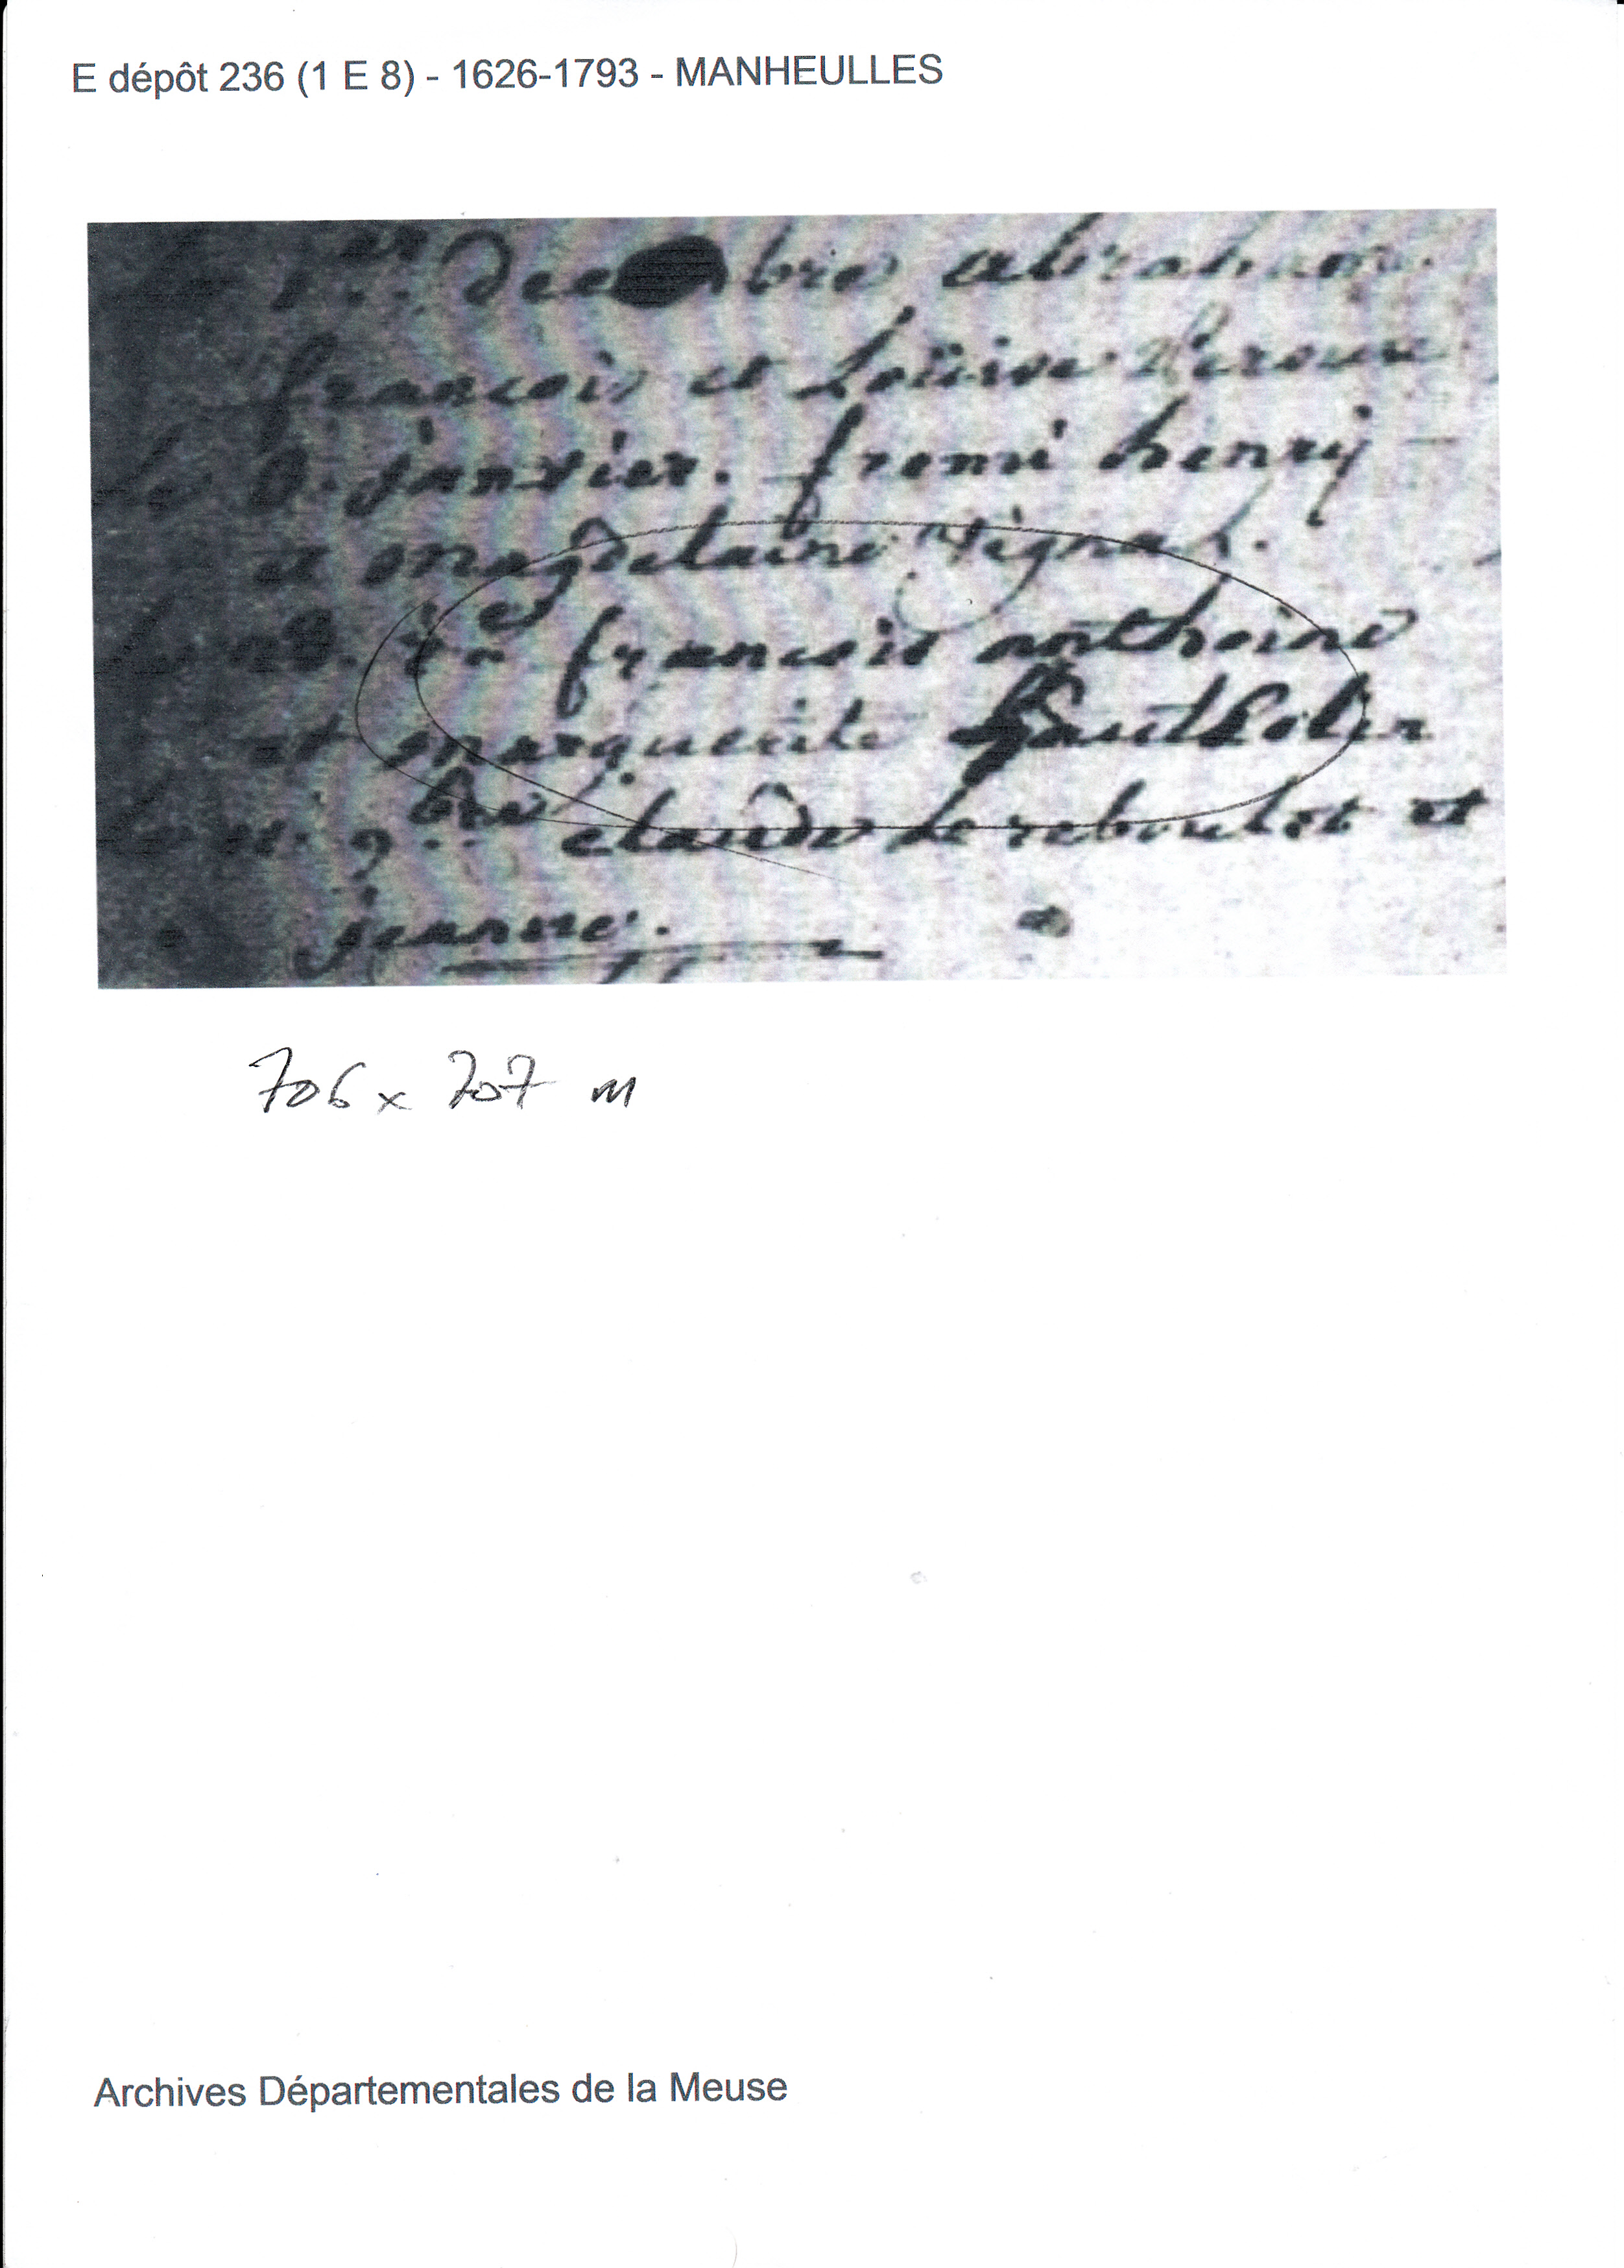 E dépôt 236 (1 E 8) - 1626-1793 - MANHEULLES
1.er decembre abraham
francois et Loüise
janvier. fremi henry
et magdelaine
francois anthoine
et marguerite
9.bre claude Le reboulet et
jeanne.
706 x 707 m
Archives Départementales de la Meuse